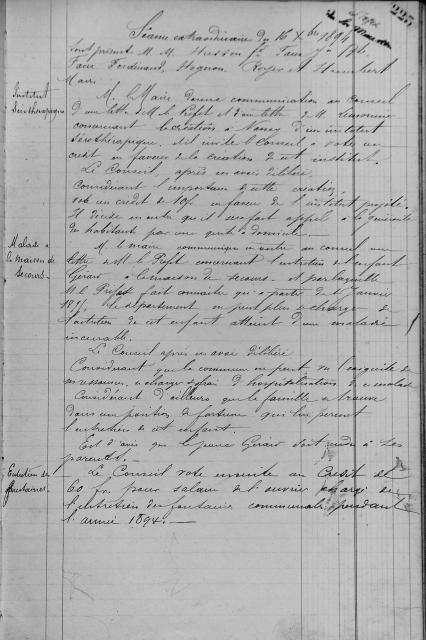 225
Séance extraordinaire du 16 Xbre 1894
sont présents M. M. Husson
Faure Ferdinand, Hognon Royer et Humbert
Maire
Institut
Sérothérapique
M. le Maire donne communication au Conseil
d'une lettre de M. le Préfet et d'une lettre de M.
concernant la création à Nancy d'un institut
sérothérapique. Il invite le Conseil à voter un
crédit en faveur de la création de cet institut.
Le Conseil, après en avoir délibéré,
Considérant l'importance de cette création,
vote un crédit de 10f en faveur de l'institut projeté.
Il décide en outre qu'il sera fait appel à la générosité
des habitants par une quête à domicile.
Malade à
la maison de
secours.
M. le maire communique en outre au conseil une
lettre de M. le Préfet concernant l'entretien de l'enfant
Gérard à la maison de secours et par laquelle
M. le Préfet fait connaître qu'à partir du 1er Janvier
1895, le département ne peut plus se charger de
l'entretien de cet enfant atteint d'une maladie
incurable.
Le Conseil après en avoir délibéré
Considérant que la commune ne peut vu l'exiguité de
ses ressources, se charger des frais d'hospitalisation de ce malade
Considérant d'ailleurs que la famille se trouve
dans une position de fortune qui lui permet
l'entretien de cet enfant.
Est d'avis que le jeune Gérard soit rendu à ses
parents.
Entretien des
fontaines.
Le Conseil vote ensuite un Crédit de
60 fr. pour salaire de l'ouvrier chargé de
l'entretien des fontaines communales pendant
l'année 1894.